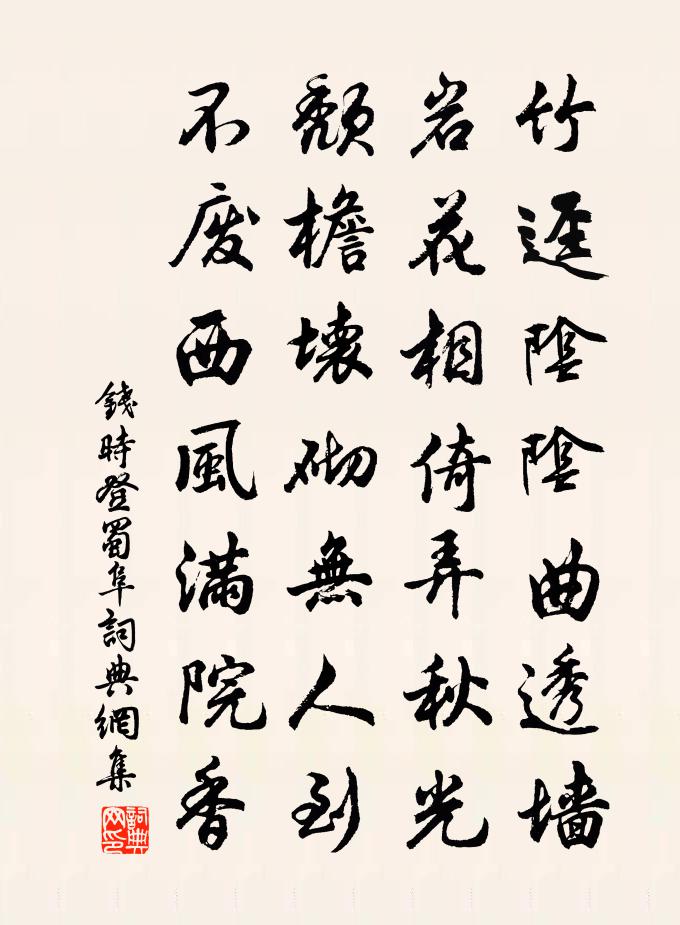 竹迳陰陰曲透墙
岩花相倚弄秋光
頹檐壞砌無人到
不废西風滿院香
錢時登蜀阜詞典網集
詞典网印